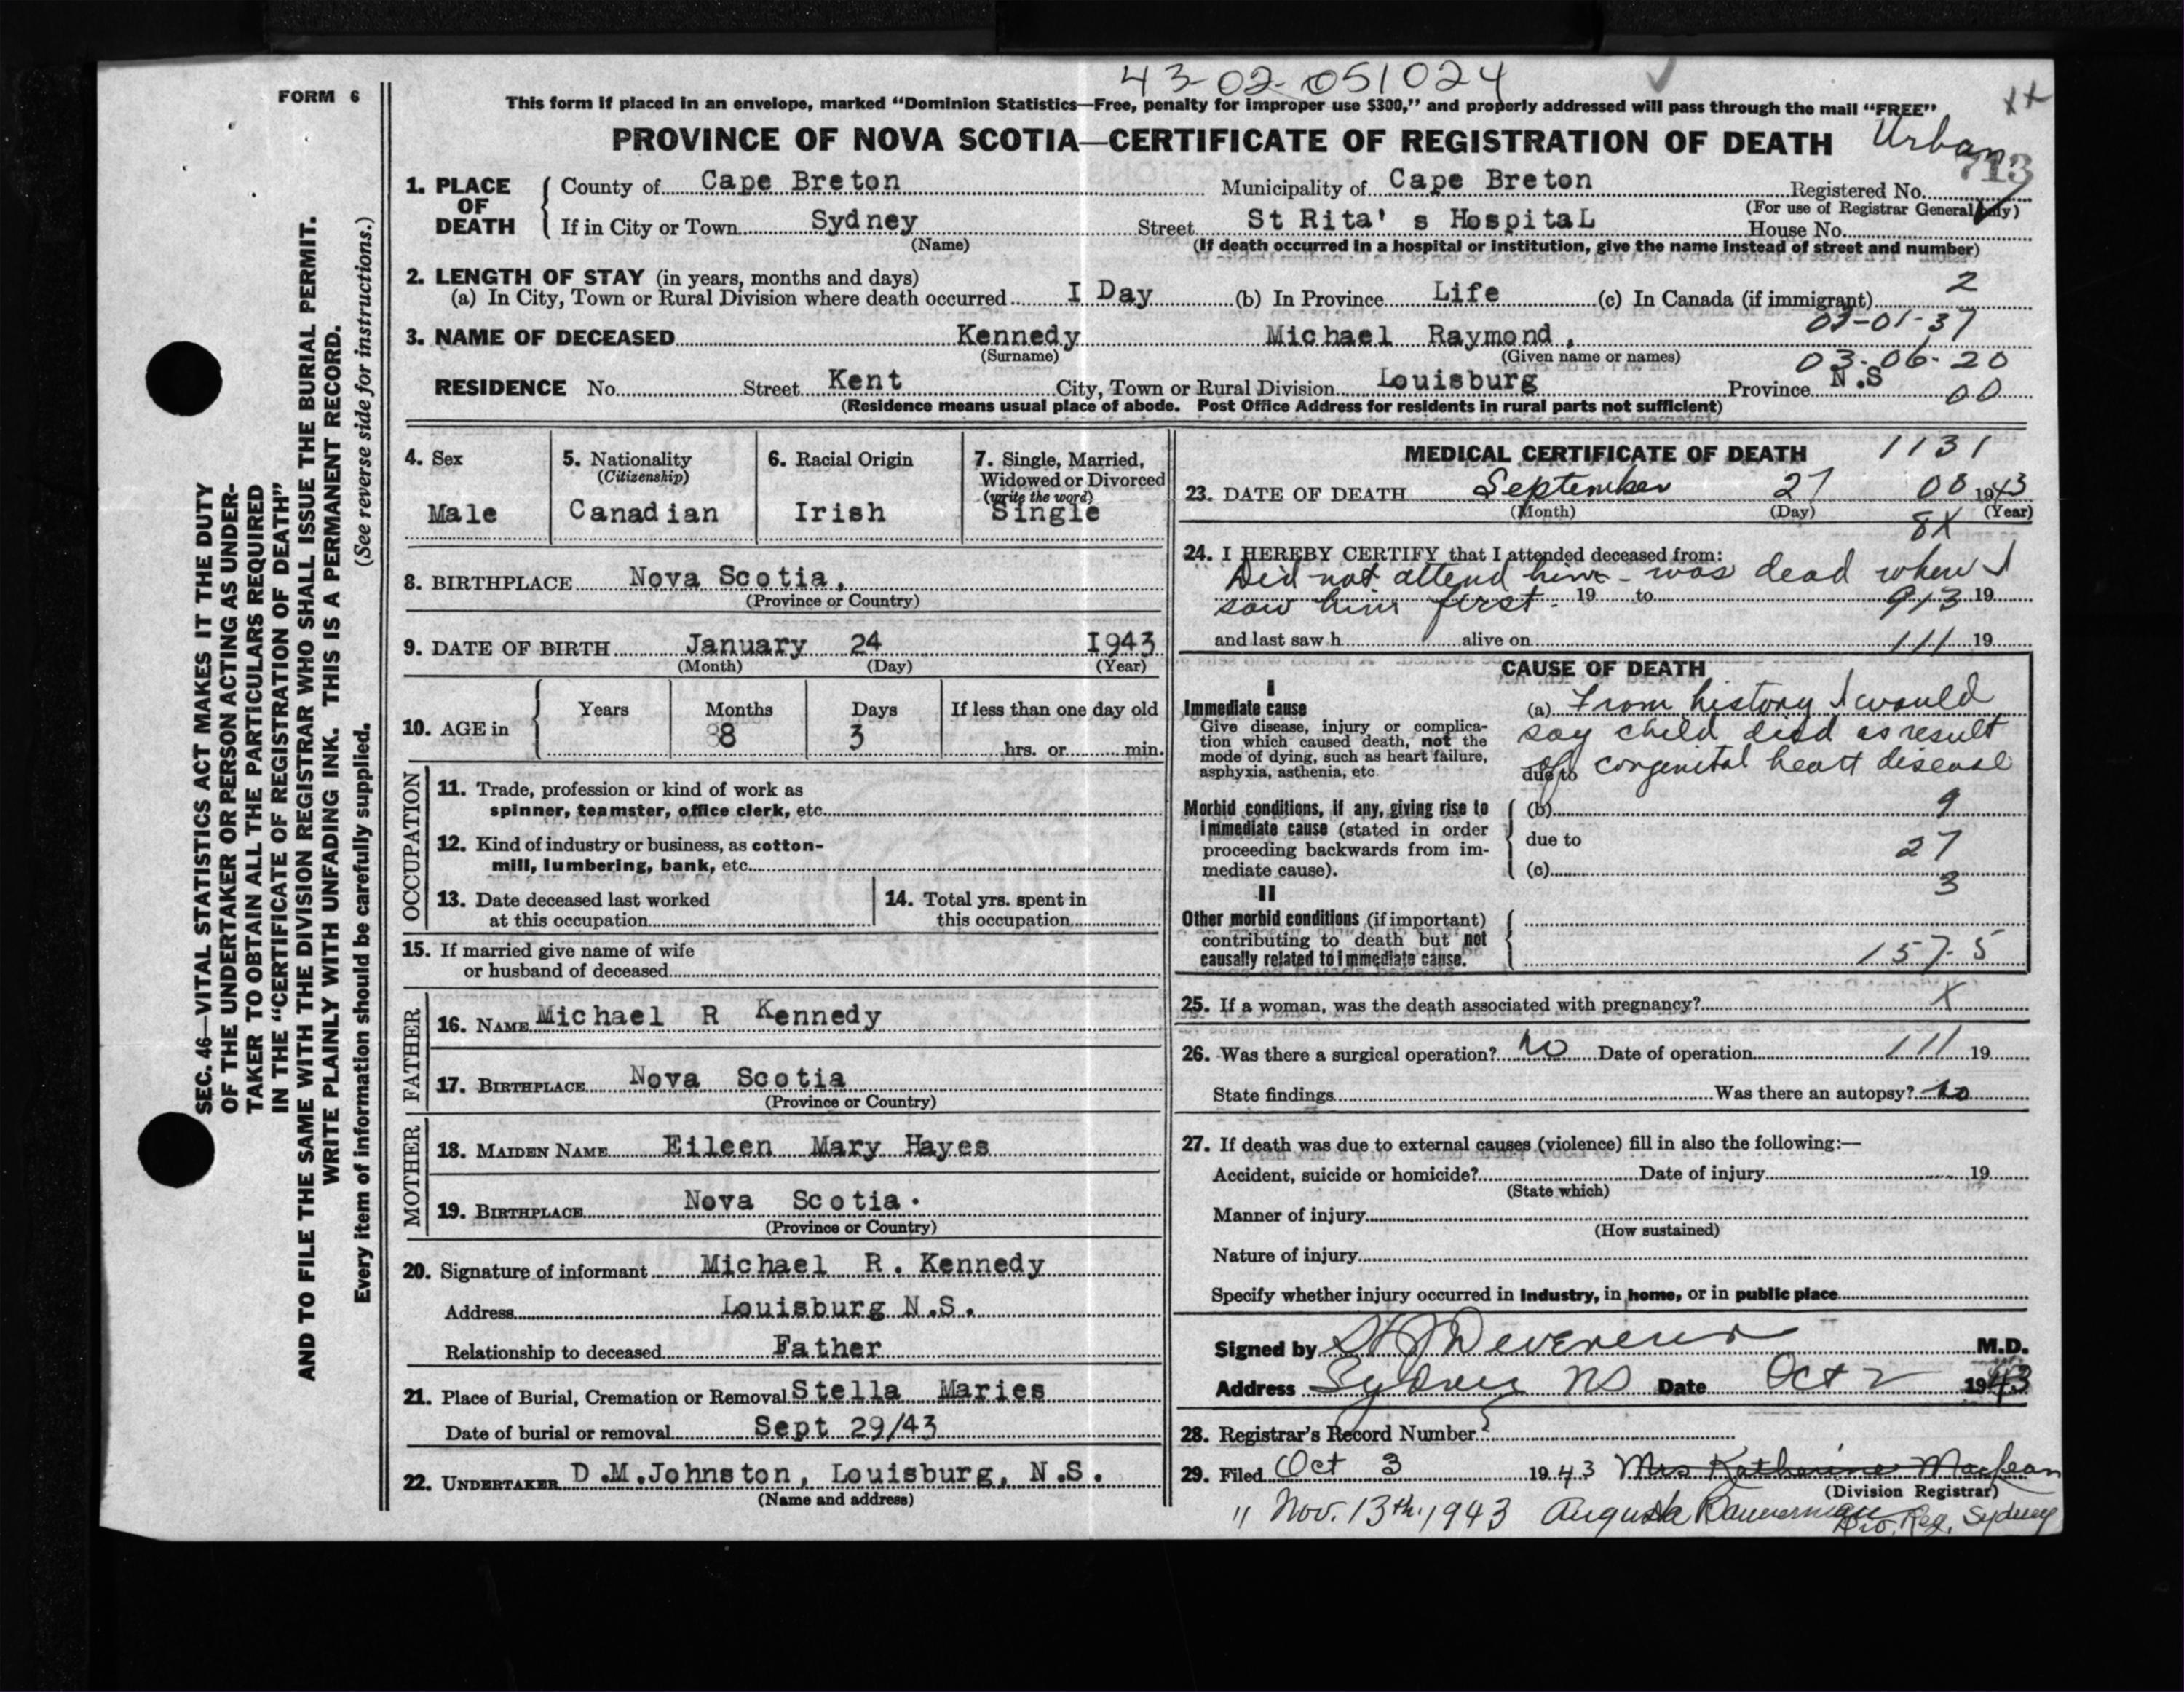 43-02-051024
FORM 6
This form if placed in an envelope, marked “Dominion Statistics—Free, penalty for improper use $300,” and properly addressed will pass through the mail “FREE”
PROVINCE OF NOVA SCOTIA—CERTIFICATE OF REGISTRATION OF DEATH
Urban
713
1. PLACE OF DEATH
County of Cape Breton Municipality of Cape Breton Registered No.
(For use of Registrar General only)
If in City or Town Sydney Street St Rita's Hospital House No.
(Name) (If death occurred in a hospital or institution, give the name instead of street and number)
2. LENGTH OF STAY (in years, months and days)
(a) In City, Town or Rural Division where death occurred I Day (b) In Province Life (c) In Canada (if immigrant) 2
3. NAME OF DECEASED Kennedy Michael Raymond,
(Surname) (Given name or names)
03-06-20
RESIDENCE No. Street Kent City, Town or Rural Division Louisburg Province N.S
00
(Residence means usual place of abode. Post Office Address for residents in rural parts not sufficient)
4. Sex
Male
5. Nationality
(Citizenship)
Canadian
6. Racial Origin
Irish
7. Single, Married, Widowed or Divorced
(write the word)
Single
8. BIRTHPLACE Nova Scotia,
(Province or Country)
9. DATE OF BIRTH January 24 I943
(Month) (Day) (Year)
10. AGE in
Years Months Days If less than one day old
8 3 hrs. or min.
OCCUPATION
11. Trade, profession or kind of work as
spinner, teamster, office clerk, etc.
12. Kind of industry or business, as cotton-
mill, lumbering, bank, etc.
13. Date deceased last worked
at this occupation
14. Total yrs. spent in
this occupation
15. If married give name of wife
or husband of deceased
FATHER
16. NAME Michael R Kennedy
17. BIRTHPLACE Nova Scotia
(Province or Country)
MOTHER
18. MAIDEN NAME Eileen Mary Hayes
19. BIRTHPLACE Nova Scotia.
(Province or Country)
20. Signature of informant Michael R. Kennedy
Address Louisburg N.S.
Relationship to deceased Father
21. Place of Burial, Cremation or Removal Stella Maries
Date of burial or removal Sept 29/43
22. UNDERTAKER D.M.Johnston, Louisburg, N.S.
(Name and address)
MEDICAL CERTIFICATE OF DEATH
1131
23. DATE OF DEATH September 27 1943
(Month) (Day) (Year)
8X
24. I HEREBY CERTIFY that I attended deceased from:
Did not attend him - was dead when I
saw him first. 19 to 913 19
and last saw h alive on 111 19
CAUSE OF DEATH
I
Immediate cause
Give disease, injury or complica-
tion which caused death, not the
mode of dying, such as heart failure,
asphyxia, asthenia, etc.
(a) From history I would
say child died as result
due to
of congenital heart disease
Morbid conditions, if any, giving rise to
immediate cause (stated in order
proceeding backwards from im-
mediate cause).
(b) 9
due to 27
(c) 3
II
Other morbid conditions (if important)
contributing to death but not
causally related to immediate cause.
157-5
25. If a woman, was the death associated with pregnancy? X
26. Was there a surgical operation? No Date of operation 111 19
State findings Was there an autopsy? No
27. If death was due to external causes (violence) fill in also the following:—
Accident, suicide or homicide? Date of injury 19
(State which)
Manner of injury
(How sustained)
Nature of injury
Specify whether injury occurred in industry, in home, or in public place
Signed by Devereux M.D.
Address Sydney NS Date Oct 2 1943
28. Registrar's Record Number
29. Filed Oct 3 1943 Mrs Katherine MacLean
(Division Registrar)
" Nov. 13th. 1943 Augusta Bannerman Div. Reg. Sydney
SEC. 46—VITAL STATISTICS ACT MAKES IT THE DUTY
OF THE UNDERTAKER OR PERSON ACTING AS UNDER-
TAKER TO OBTAIN ALL THE PARTICULARS REQUIRED
IN THE “CERTIFICATE OF REGISTRATION OF DEATH”
AND TO FILE THE SAME WITH THE DIVISION REGISTRAR WHO SHALL ISSUE THE BURIAL PERMIT.
WRITE PLAINLY WITH UNFADING INK. THIS IS A PERMANENT RECORD.
Every item of information should be carefully supplied. (See reverse side for instructions.)